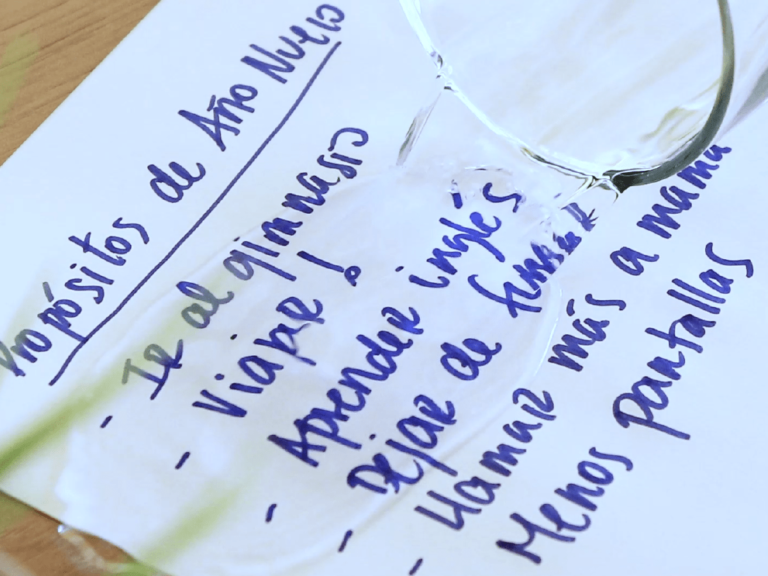 Propósitos de Año Nuevo
- Ir al gimnasio
- Viajar!
- Aprender inglés
- Dejar de fumar
- Llamar más a mamá
Menos pantallas